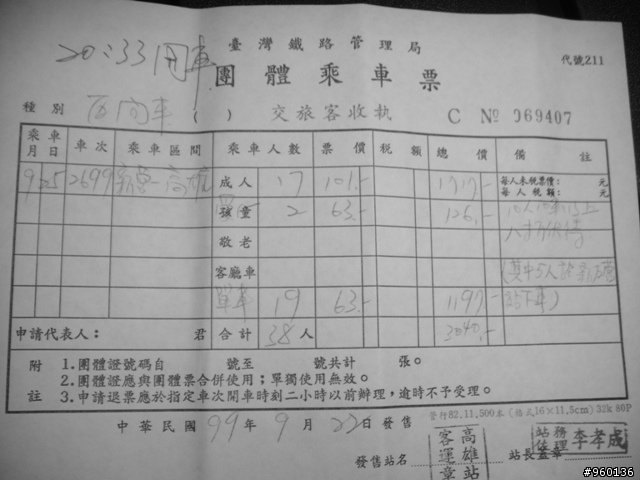 20:33開車
臺灣鐵路管理局
代號211
團體乘車票
種別 區間車 ( ) 交旅客收執 C No 069407
乘車月日 車次 乘車區間 乘車人數 票價 稅額 總價 備註
9 25 2699 高雄 成人 17 101.- 1717.- 每人未稅票價: 元
每人稅額: 元
孩童 2 63.- 126.-
敬老
客廳車
單車 19 63.- 1197.-
申請代表人: 君 合計 38人 3040.-
附註
1.團體證號碼自 號至 號共計 張。
2.團體證應與團體票合併使用;單獨使用無效。
3.申請退票應於指定車次開車時刻二小時以前辦理,逾時不予受理。
管行82,11,500本(格式16×11,5cm)32k 80P
中華民國 99年 9月 22日發售
發售站名 高雄 客運 章站
站長蓋章 站務佐理 李孝成
#960136